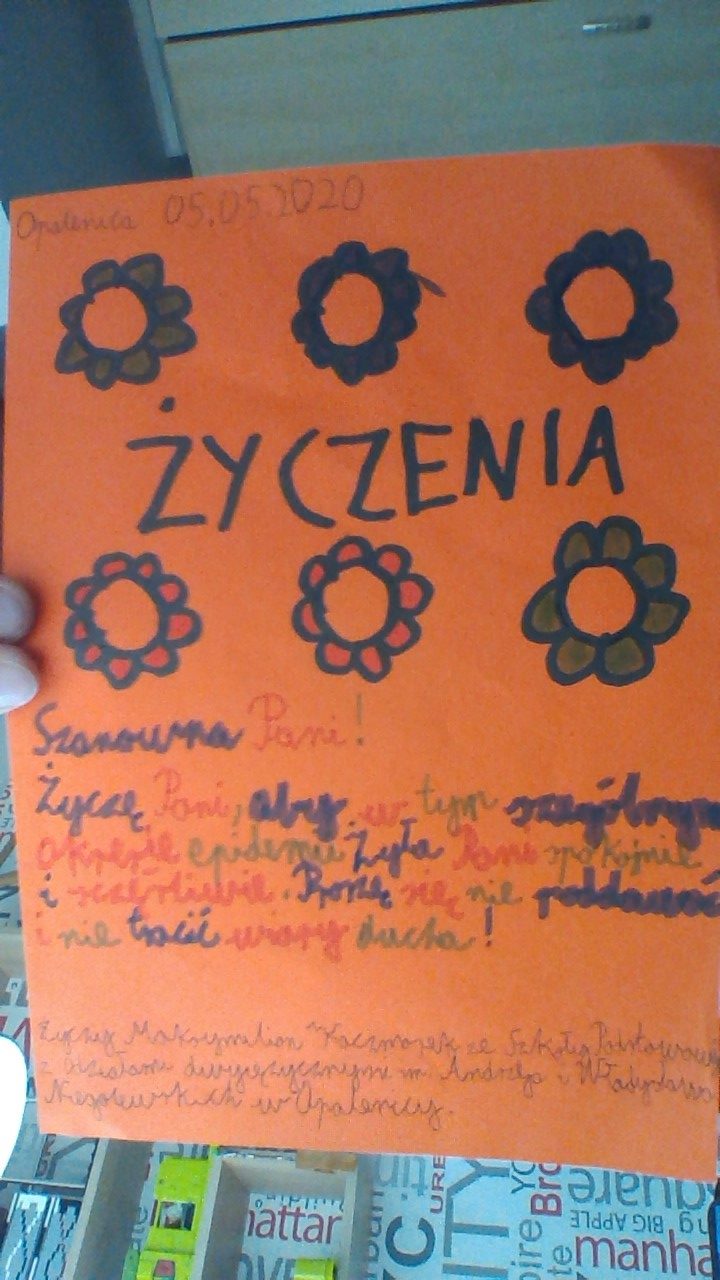 Opalenica 05.05.2020
ŻYCZENIA
Szanowna Pani!
Życzę Pani, aby w tym szególnym
okresie epidemii Żyła Pani spokojnie
i szczęśliwie. Proszę się nie poddawać
i nie tracić wiary ducha!
Życzy Maksymilian Kaczmarek ze Szkoły Podstawowej
z Odziałami dwujęzycznymi im. Andrzeja i Władysława
Niegolewskich w Opalenicy.
hattar
URB
CITY
Bro
square
BIG APPLE
manha